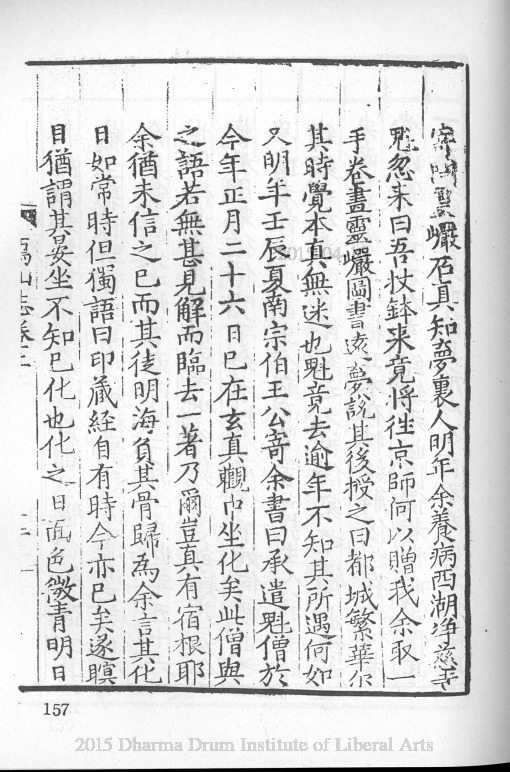 靈巗石真知夢裏人明年余養病西湖淨慈寺
魁忽来曰吾杖鉢来竟將徃京師何以贈我余取一
手卷畫靈巗圖書遠夢説其後授之曰都城繁華尔
其時覺本真無迷也魁竟去逾年不知其所遇何如
又明年壬辰夏南宗伯王公寄余書曰承遣魁僧於
今年正月二十六日巳在玄真觀中坐化矣此僧與
之語若無甚見解而臨去一著乃爾豈真有宿根耶
余猶未信之巳而其徒明海負其骨歸爲余言其化
日如常時但獨語曰印藏経自有時今亦巳矣遂瞑
目猶謂其晏坐不知巳化也化之日面色微青明日
山志卷
157
2015 Dharma Drum Institute of Liberal Arts